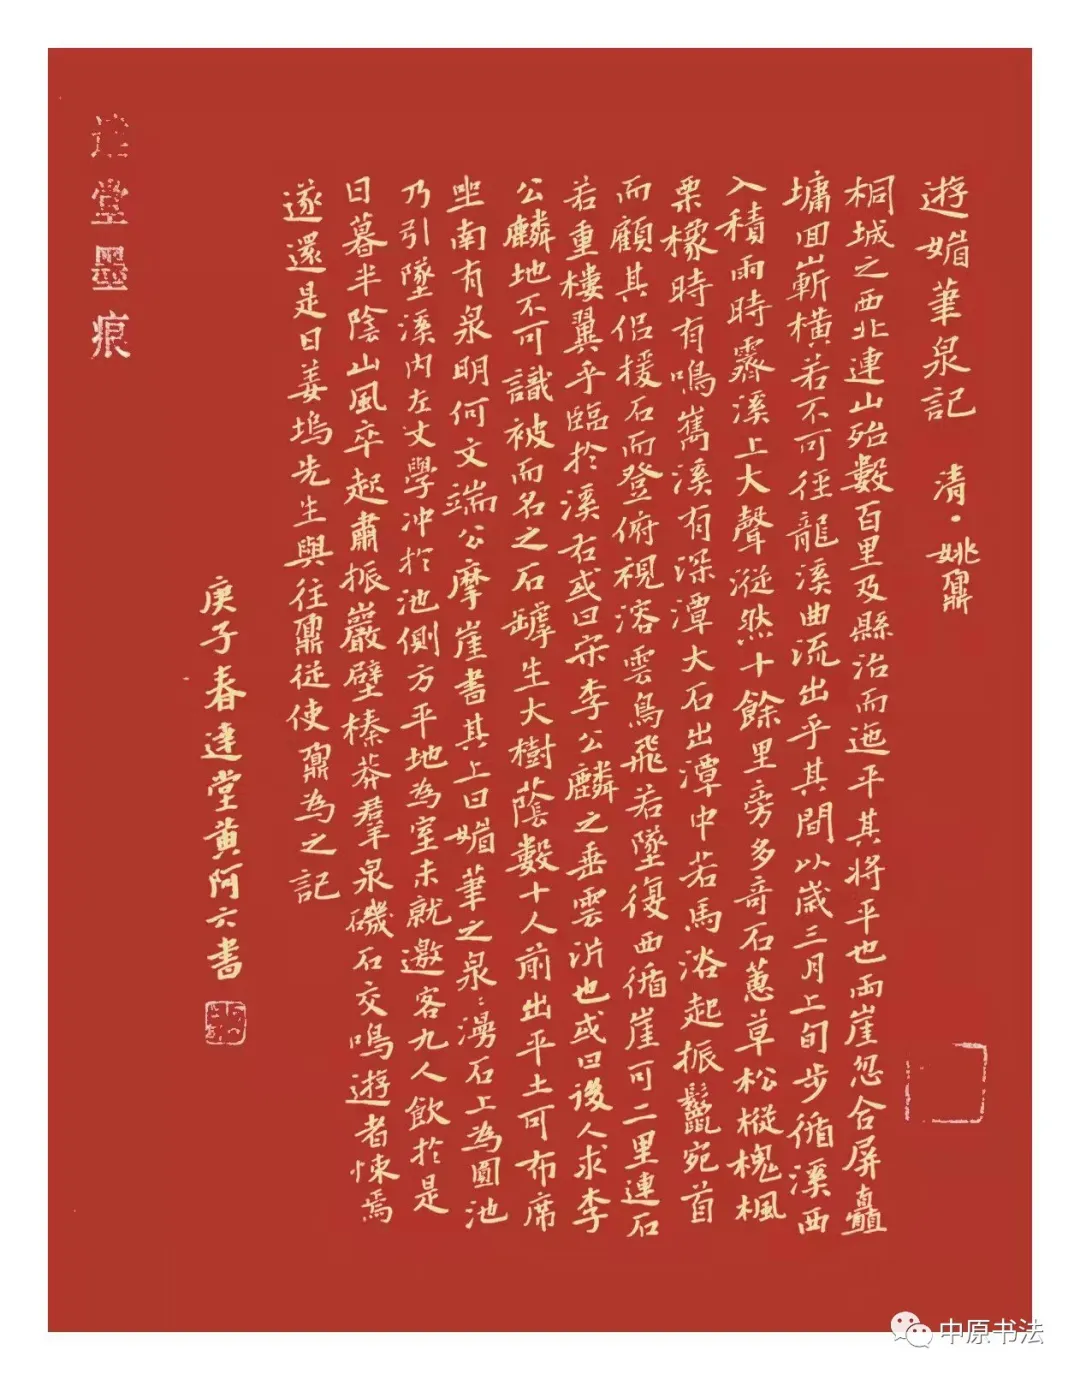 遊媚筆泉記 清·姚鼐
桐城之西北連山殆數百里及縣治而迤平其將平也兩崖忽合屏矗
墉回嶄橫若不可徑龍溪曲流出乎其間以歲三月上旬步循溪西
入積雨時霽溪上大聲漎然十餘里旁多奇石蕙草松樅槐楓
栗橡時有鳴巂溪有深潭大石出潭中若馬浴起振鬣宛首
而顧其侶援石而登俯視溶雲鳥飛若墜復西循崖可二里連石
若重樓翼乎臨於溪右或曰宋李公麟之垂雲沜也或曰後人求李
公麟地不可識被而名之石罅生大樹蔭數十人前出平土可布席
坐南有泉明何文端公摩崖書其上曰媚筆之泉:漫石上為圓池
乃引墜溪內左丈學沖於池側方平地為室未就邀客九人飲於是
日暮半陰山風卒起肅振巖壁榛莽羣泉磯石交鳴遊者悚焉
遂還是日姜塢先生與往鼐從使鼐為之記
庚子春達堂黄阿六書
達堂墨痕
中原书法